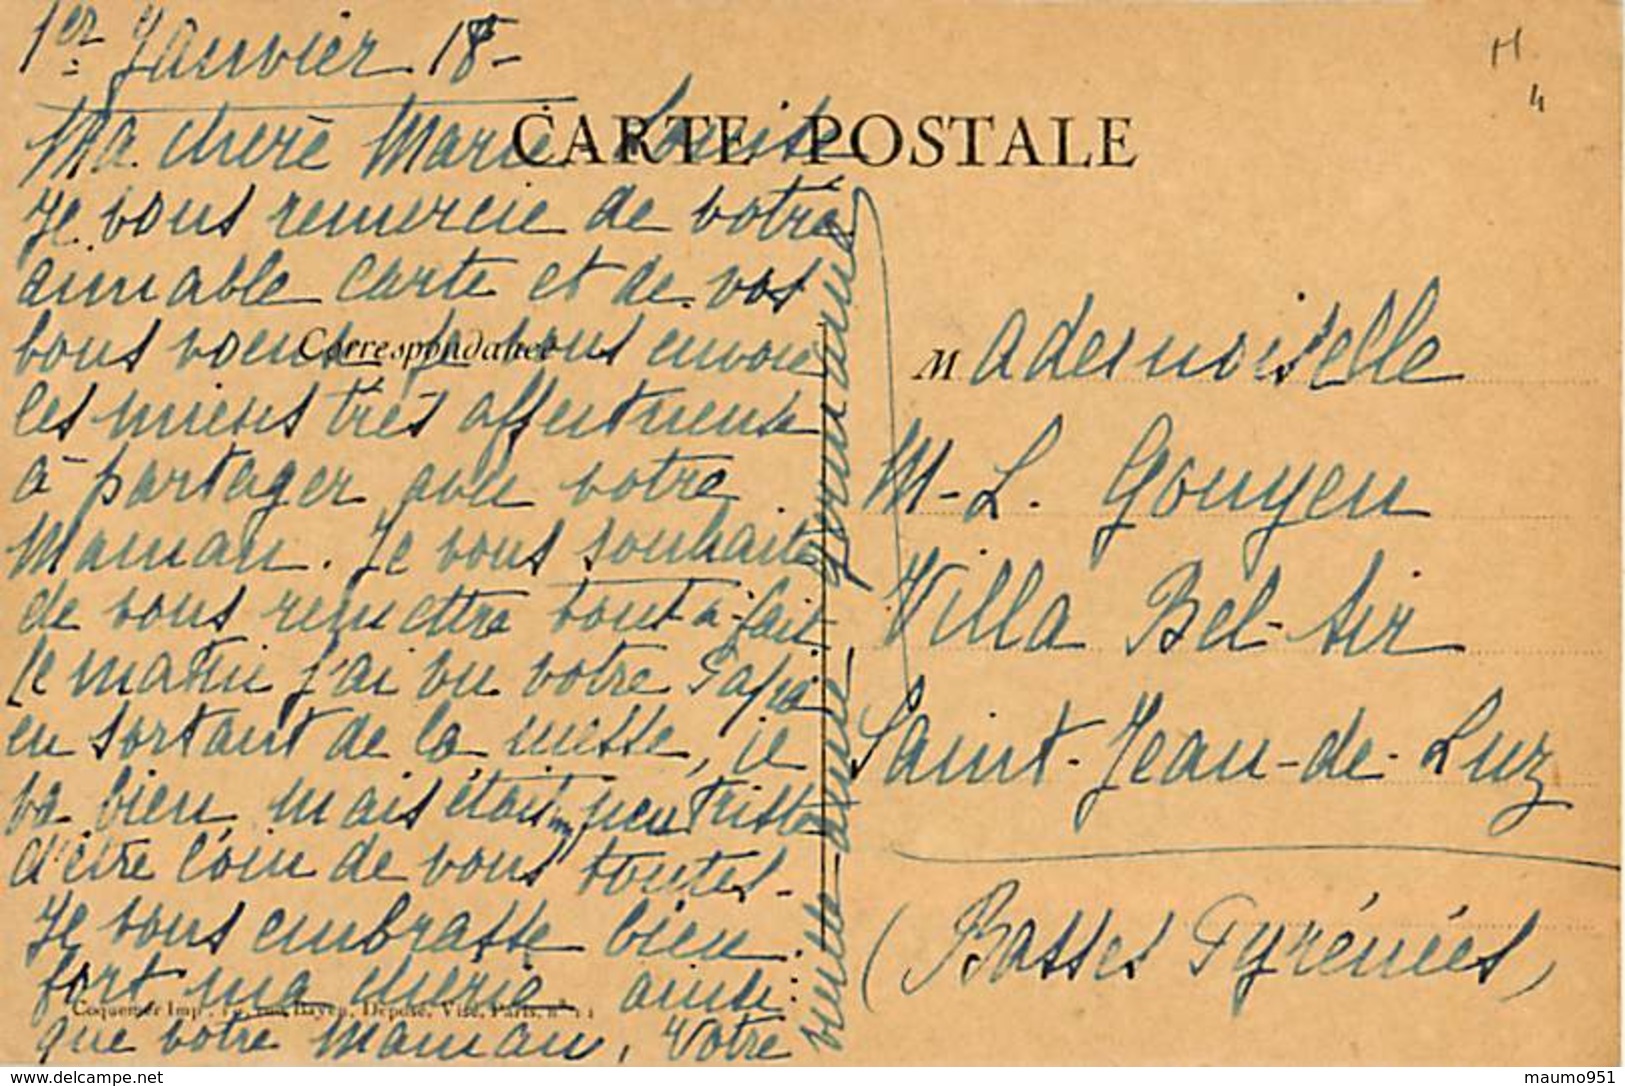 1er Janvier 18-
CARTE POSTALE
Ma chère Marie Louise
Je vous remercie de votre
aimable carte et de vos
bons voeux Je vous envoie
Correspondance
les miens très affectueux
à partager avec votre
Maman. Je vous souhaite
de vous remettre tout-à-fait
Ce matin j'ai vu votre Papa
en sortant de la messe, il
va bien mais était un peu triste
d'être loin de vous toutes-
Je vous embrasse bien
fort ma chérie ainsi
que votre Maman. Votre
vieille amie
Coquemer Imp., rue Bayen, Déposé, Visé, Paris, n° 11
M ademoiselle
M-L. Gouyen
Villa Bel-Air
Saint-Jean-de-Luz
(Basses Pyrénées)
www.delcampe.net
maumo951